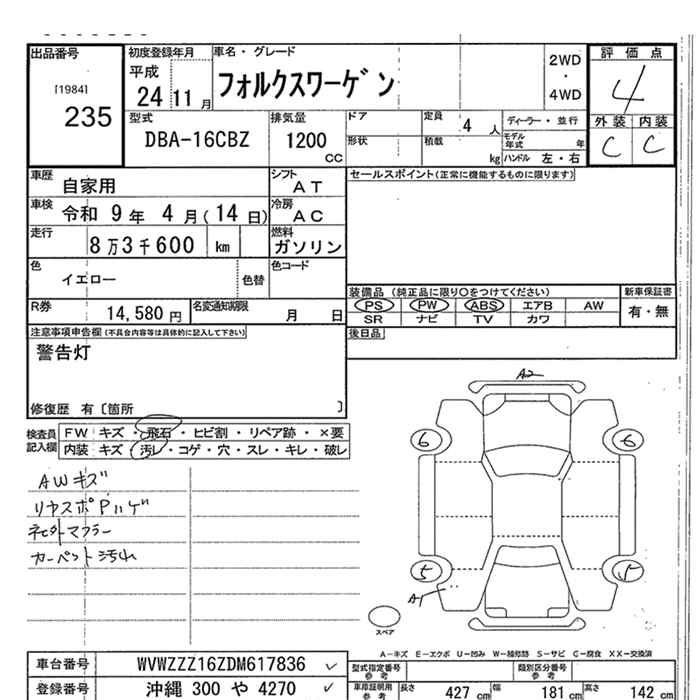 出品番号
[1984]
235
初度登録年月
平成
24 11 月
車名・グレード
フォルクスワーゲン
2WD
・
4WD
評価点
4
外装 内装
C C
型式
DBA-16CBZ
排気量
1200
CC
ドア
定員 4 人
形状
積載 kg
ディーラー・並行
モデル年式 年
ハンドル 左・右
車歴 自家用
シフト AT
車検 令和 9 年 4 月 (14 日)
冷房 AC
走行 8 万 3 千 600 km
燃料 ガソリン
色 イエロー 色替
色コード
R券 14,580 円
名変通知期限 月 日
セールスポイント(正常に機能するものに限ります)
装備品 (純正品に限り○をつけてください)
新車保証書
PS PW ABS エアB AW
有・無
SR ナビ TV カワ
後日品
注意事項申告欄 (不具合内容等は具体的に記入して下さい)
警告灯
修復歴 有〔箇所 〕
検査員記入欄
FW キズ・飛石・ヒビ割・リペア跡・×要
内装 キズ・汚レ・コゲ・穴・スレ・キレ・破レ
AWキズ
リヤスポPハゲ
社外マフラー
カーペット汚れ
A2
6 6
5 5
A1
スペア
A-キズ E-エクボ U-凹み W-補修跡 S-サビ C-腐食 XX-交換済
車台番号 WVWZZZ16ZDM617836
登録番号 沖縄 300 や 4270
型式指定番号 参考
類別区分番号 参考
車庫証明用 参考
長さ 427 cm
幅 181 cm
高さ 142 cm